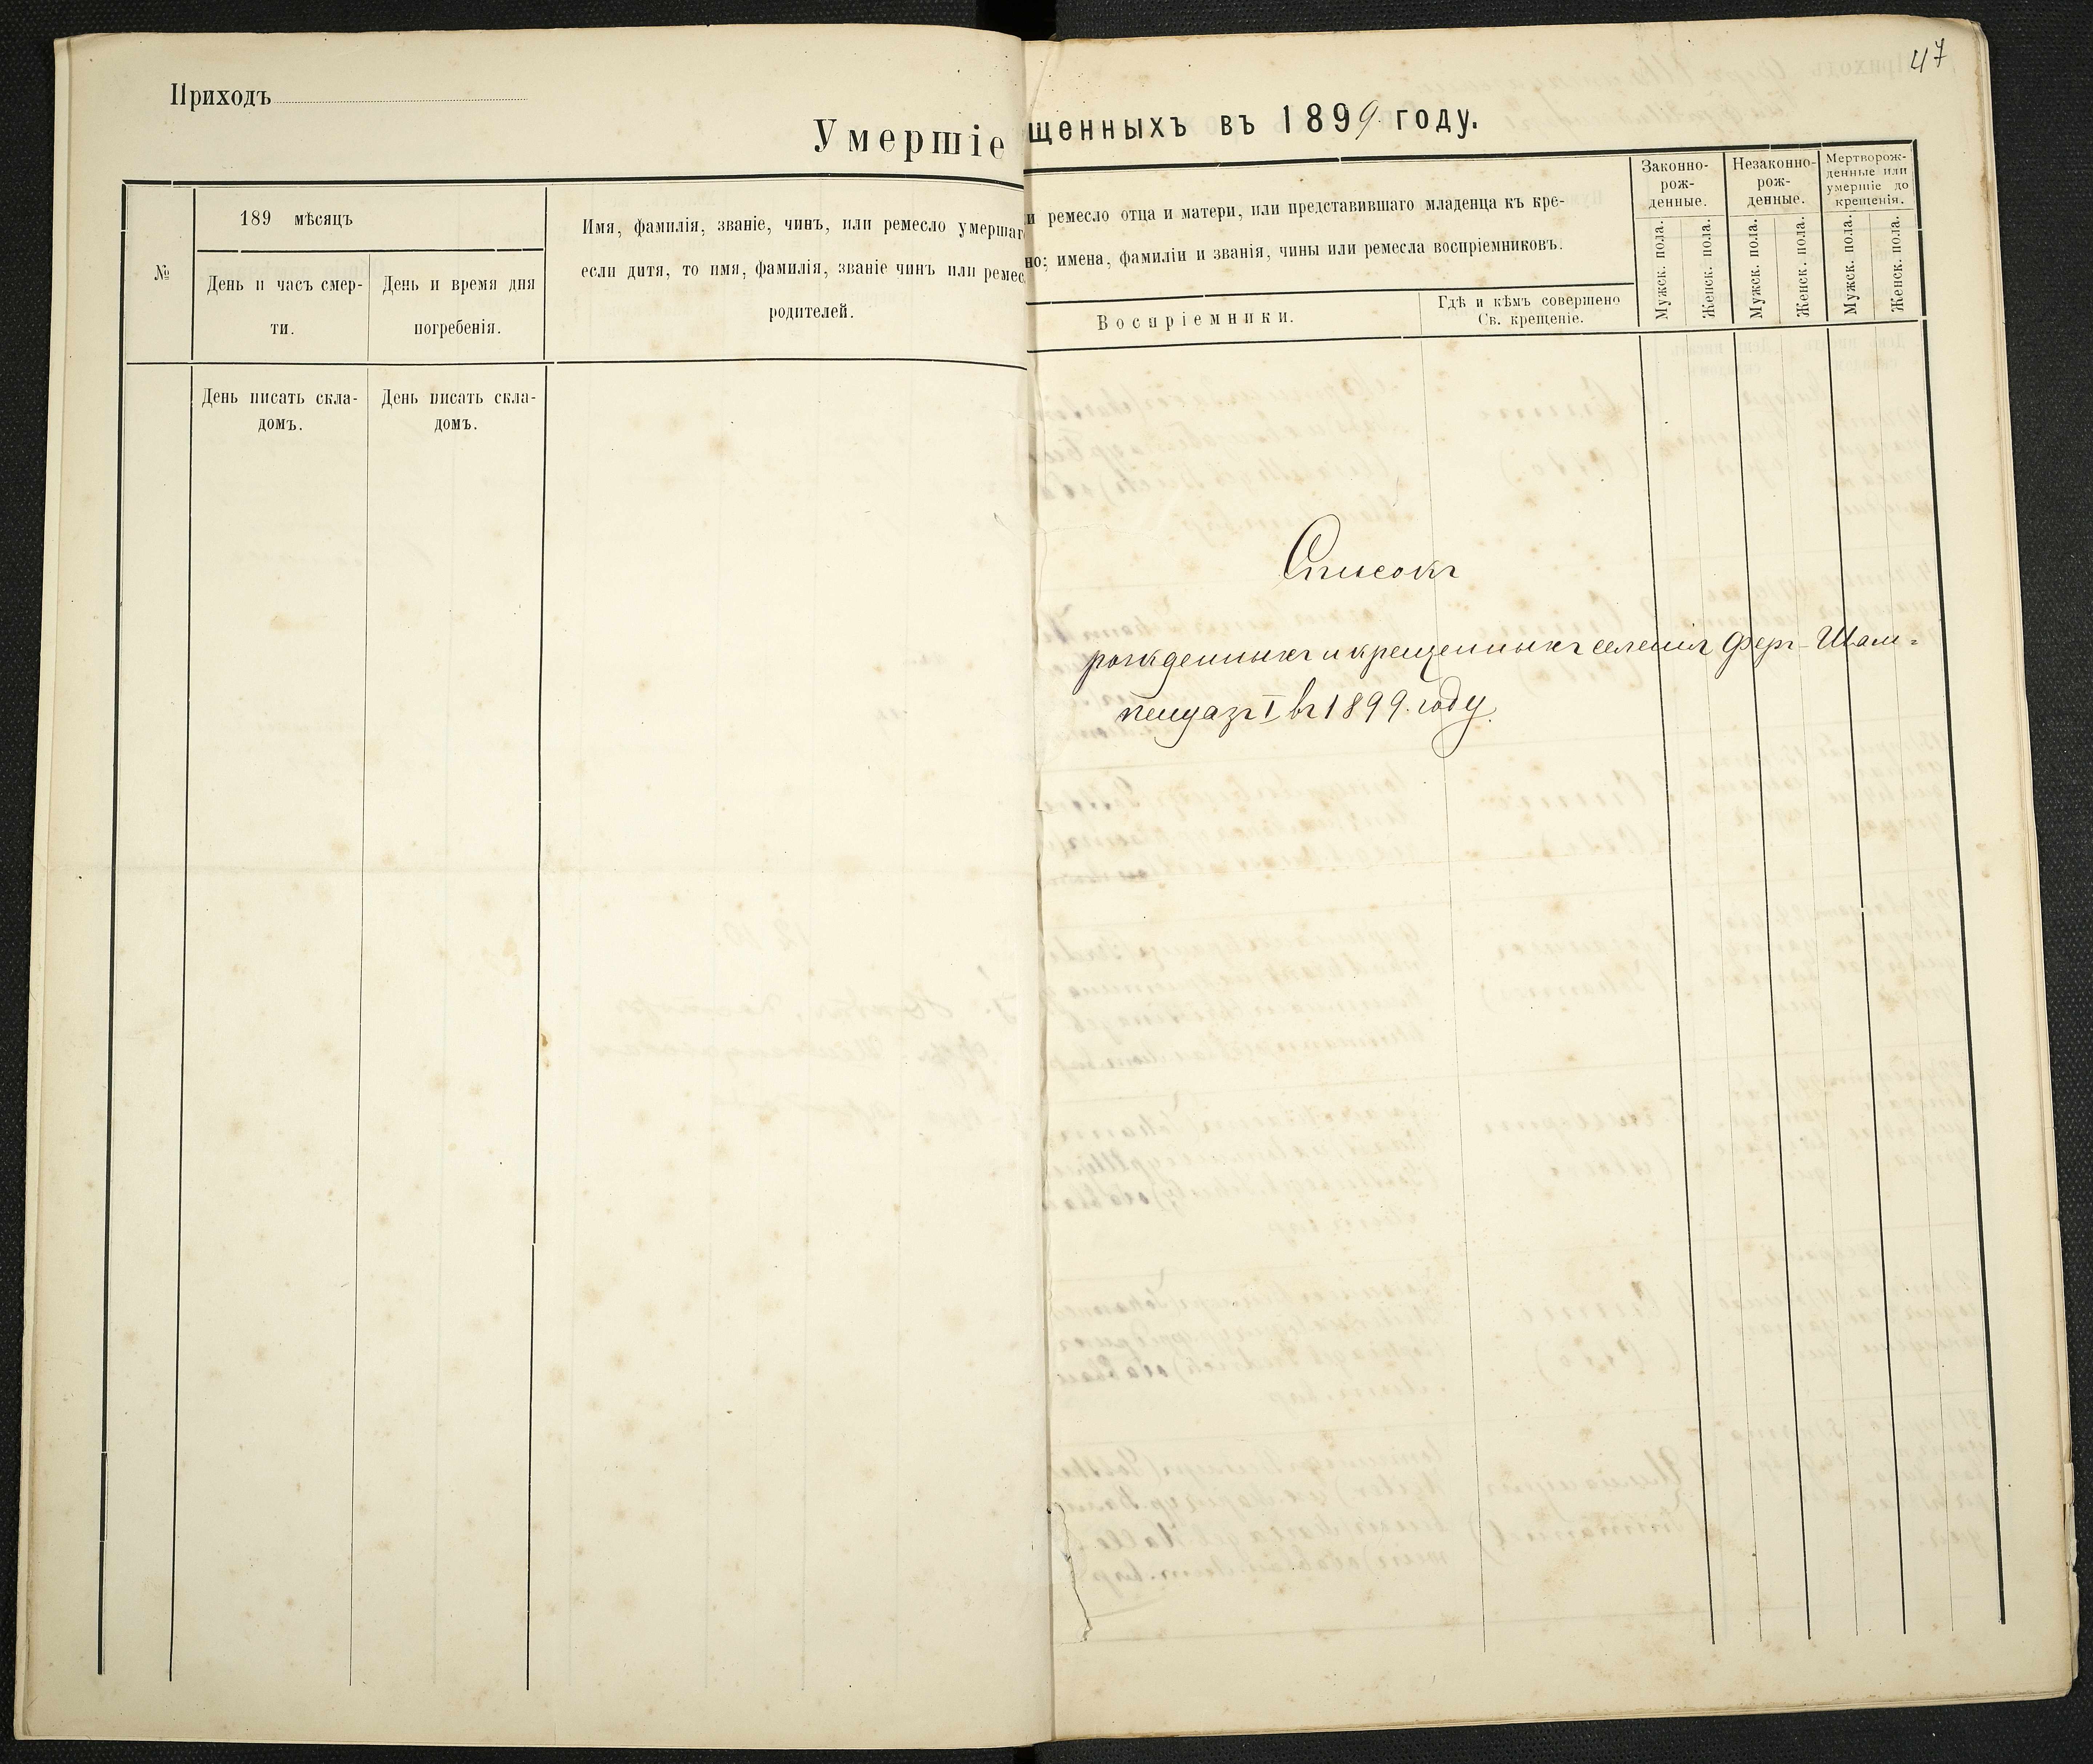 Приходъ
Умершіе
№
189 мѣсяцъ
День и часъ смер-
ти.
День и время дня
погребенія.
Имя, фамилія, званіе, чинъ, или ремесло умершаг
если дитя, то имя, фамилія, званіе чинъ или ремес
родителей.
День писать скла-
домъ.
День писать скла-
домъ.
47
щенныхъ въ 1899 году.
и ремесло отца и матери, или представившаго младенца къ кре-
но; имена, фамиліи и званія, чины или ремесла воспріемниковъ.
Воспріемники.
Гдѣ и кѣмъ совершено
Св. крещеніе.
Законно-
рож-
денные.
Незаконно-
рож-
денные.
Мертворож-
денные или
умершіе до
крещенія.
Мужск. пола.
Женск. пола.
Мужск. пола.
Женск. пола.
Мужск. пола.
Женск. пола.
Списокъ
рожденныхъ и крещенныхъ селенія Феръ-Шам=
пенуазъ I въ 1899. году.